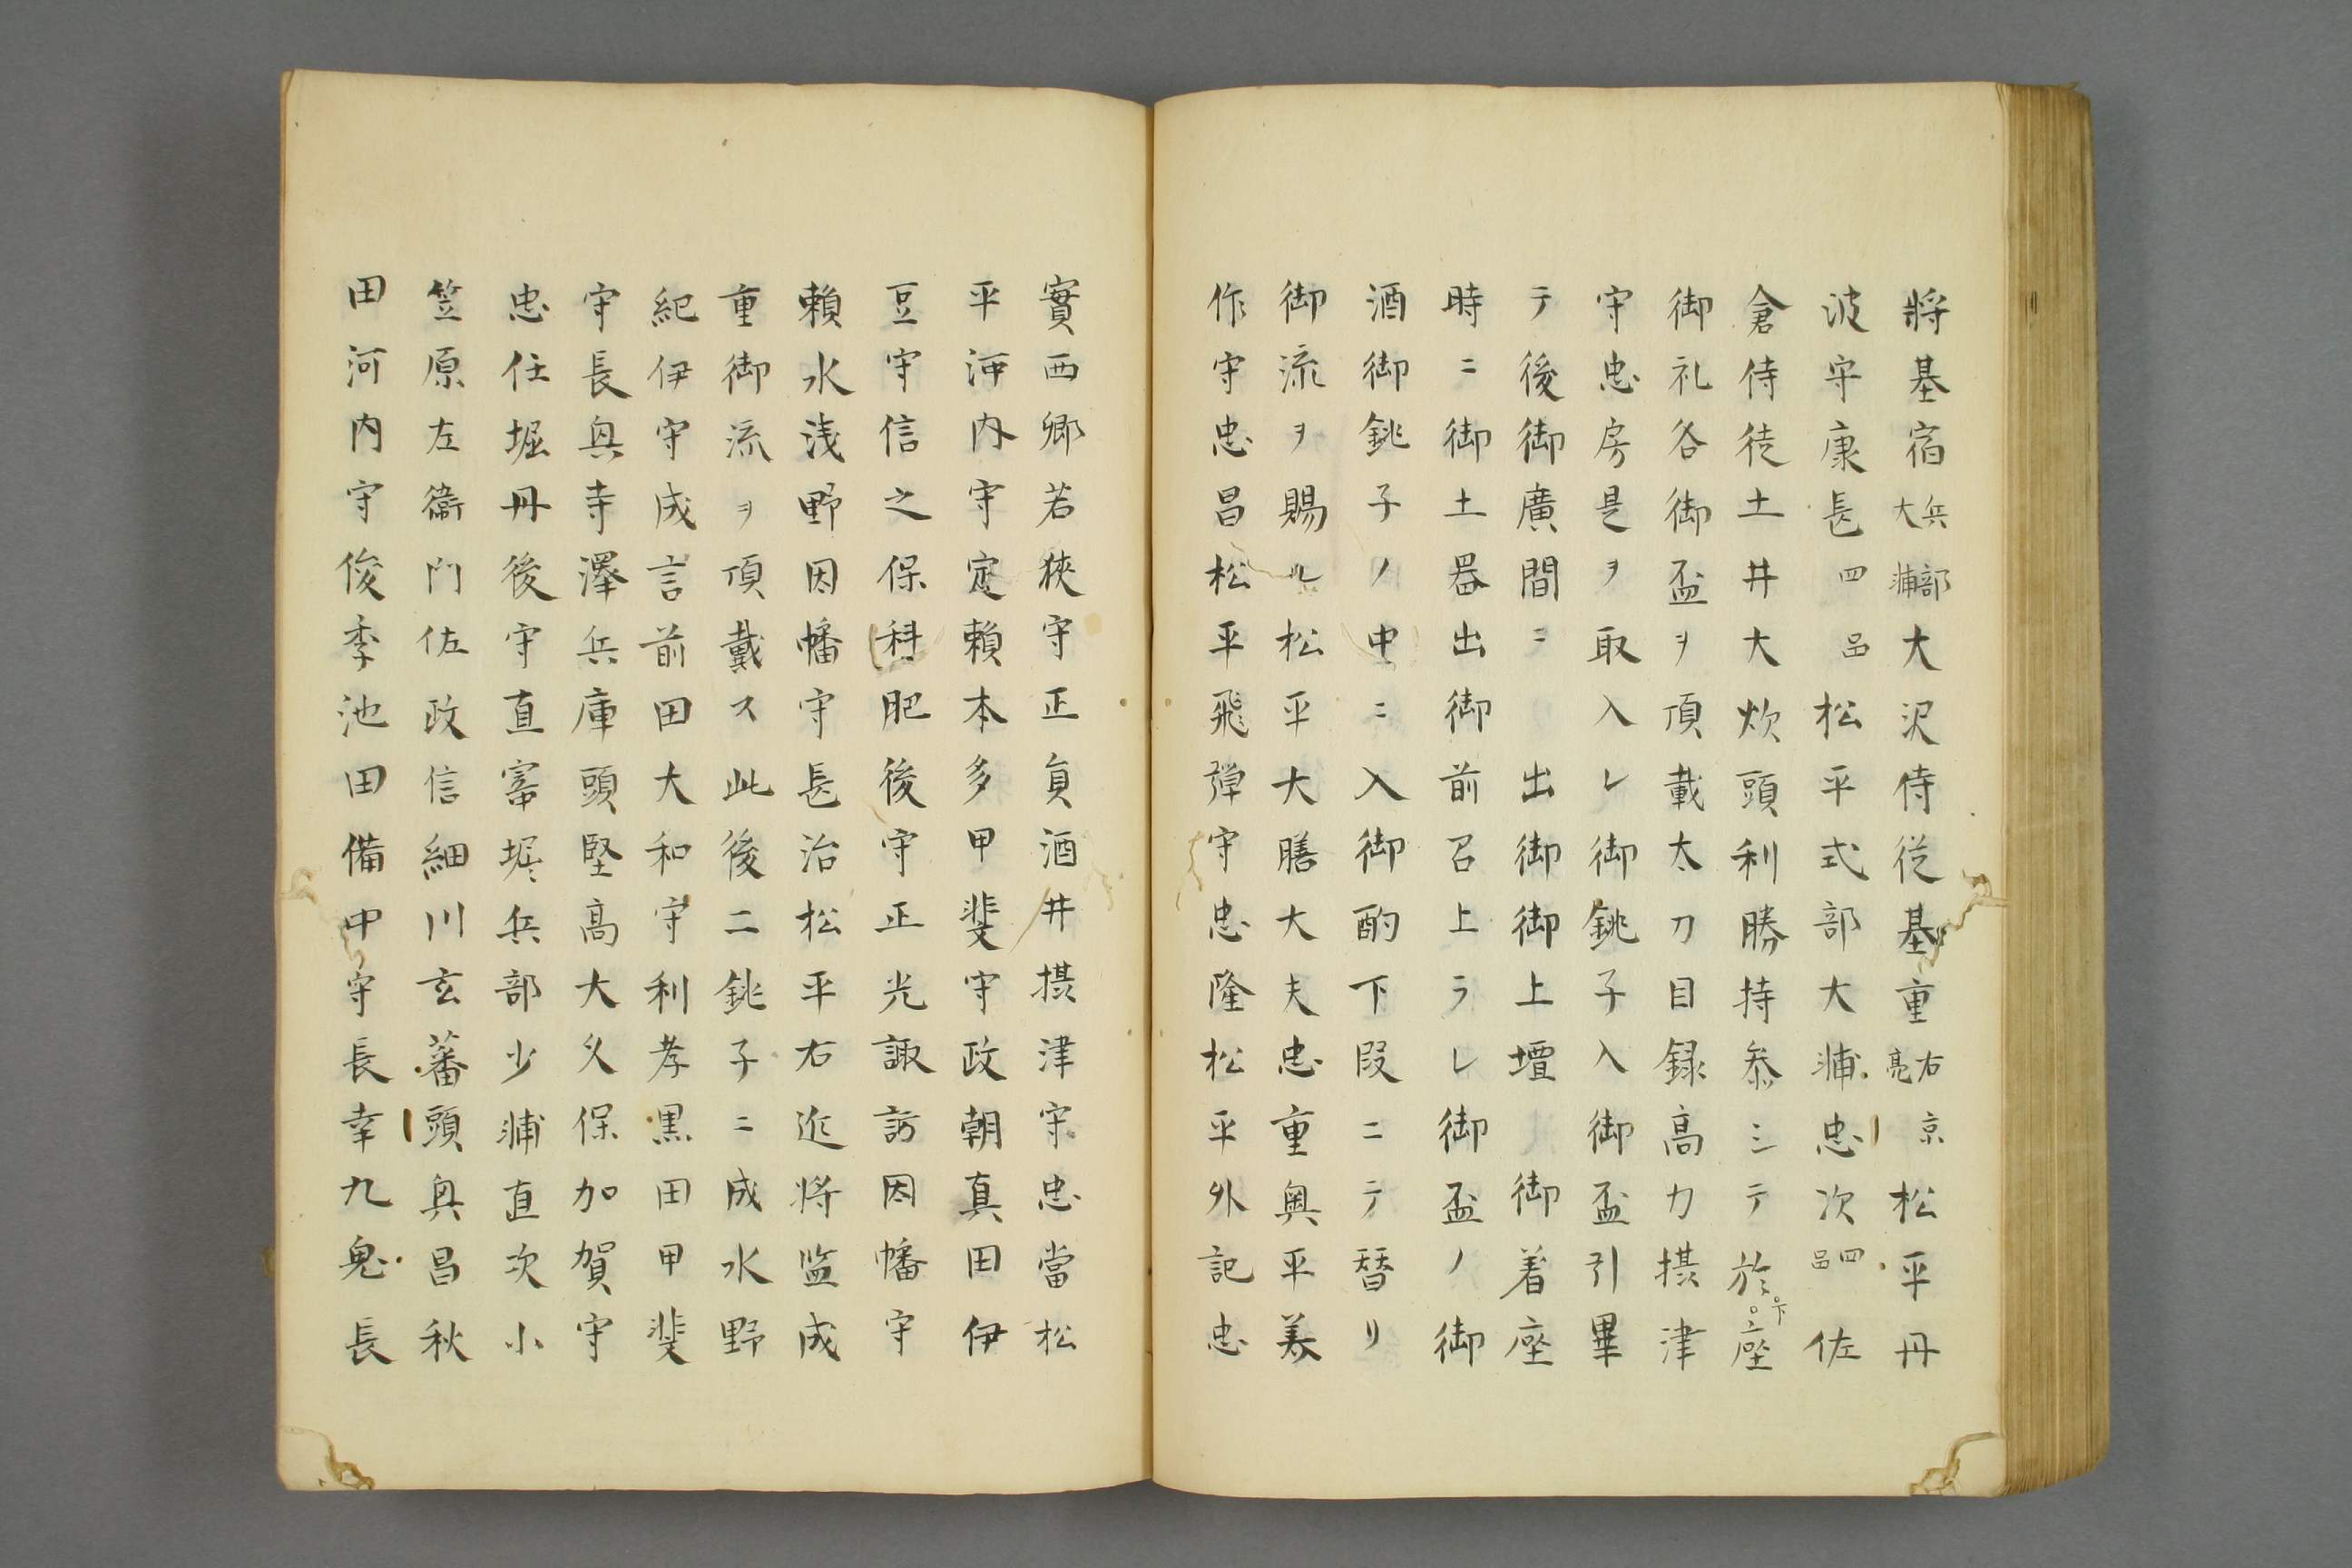 將基宿兵部大輔大沢侍従基重右京亮松平丹
波守康長四品松平式部大輔忠次四品佐
倉侍従土井大炊頭利勝持参シテ於下座
御礼各御盃ヲ頂載太刀目録高力摂津
守忠房是ヲ取入レ御銚子入御盃引畢
テ後御廣間ニ出御御上壇御着座
時ニ御土器出御前召上ラレ御盃ノ御
酒御銚子ノ中ニ入御酌下段ニテ替リ
御流ヲ賜ル松平大膳大夫忠重奥平美
作守忠昌松平飛弾守忠隆松平外記忠
實西郷若狭守正員酒井摂津守忠當松
平河内守定頼本多甲斐守政朝真田伊
豆守信之保科肥後守正光諏訪因幡守
頼水浅野因幡守長治松平右近将監成
重御流ヲ頂戴ス此後二銚子ニ成水野
紀伊守成言前田大和守利孝黒田甲斐
守長興寺澤兵庫頭堅高大久保加賀守
忠任堀丹後守直寄堀兵部少輔直次小
笠原左衛門佐政信細川玄蕃頭興昌秋
田河内守俊季池田備中守長幸九鬼長